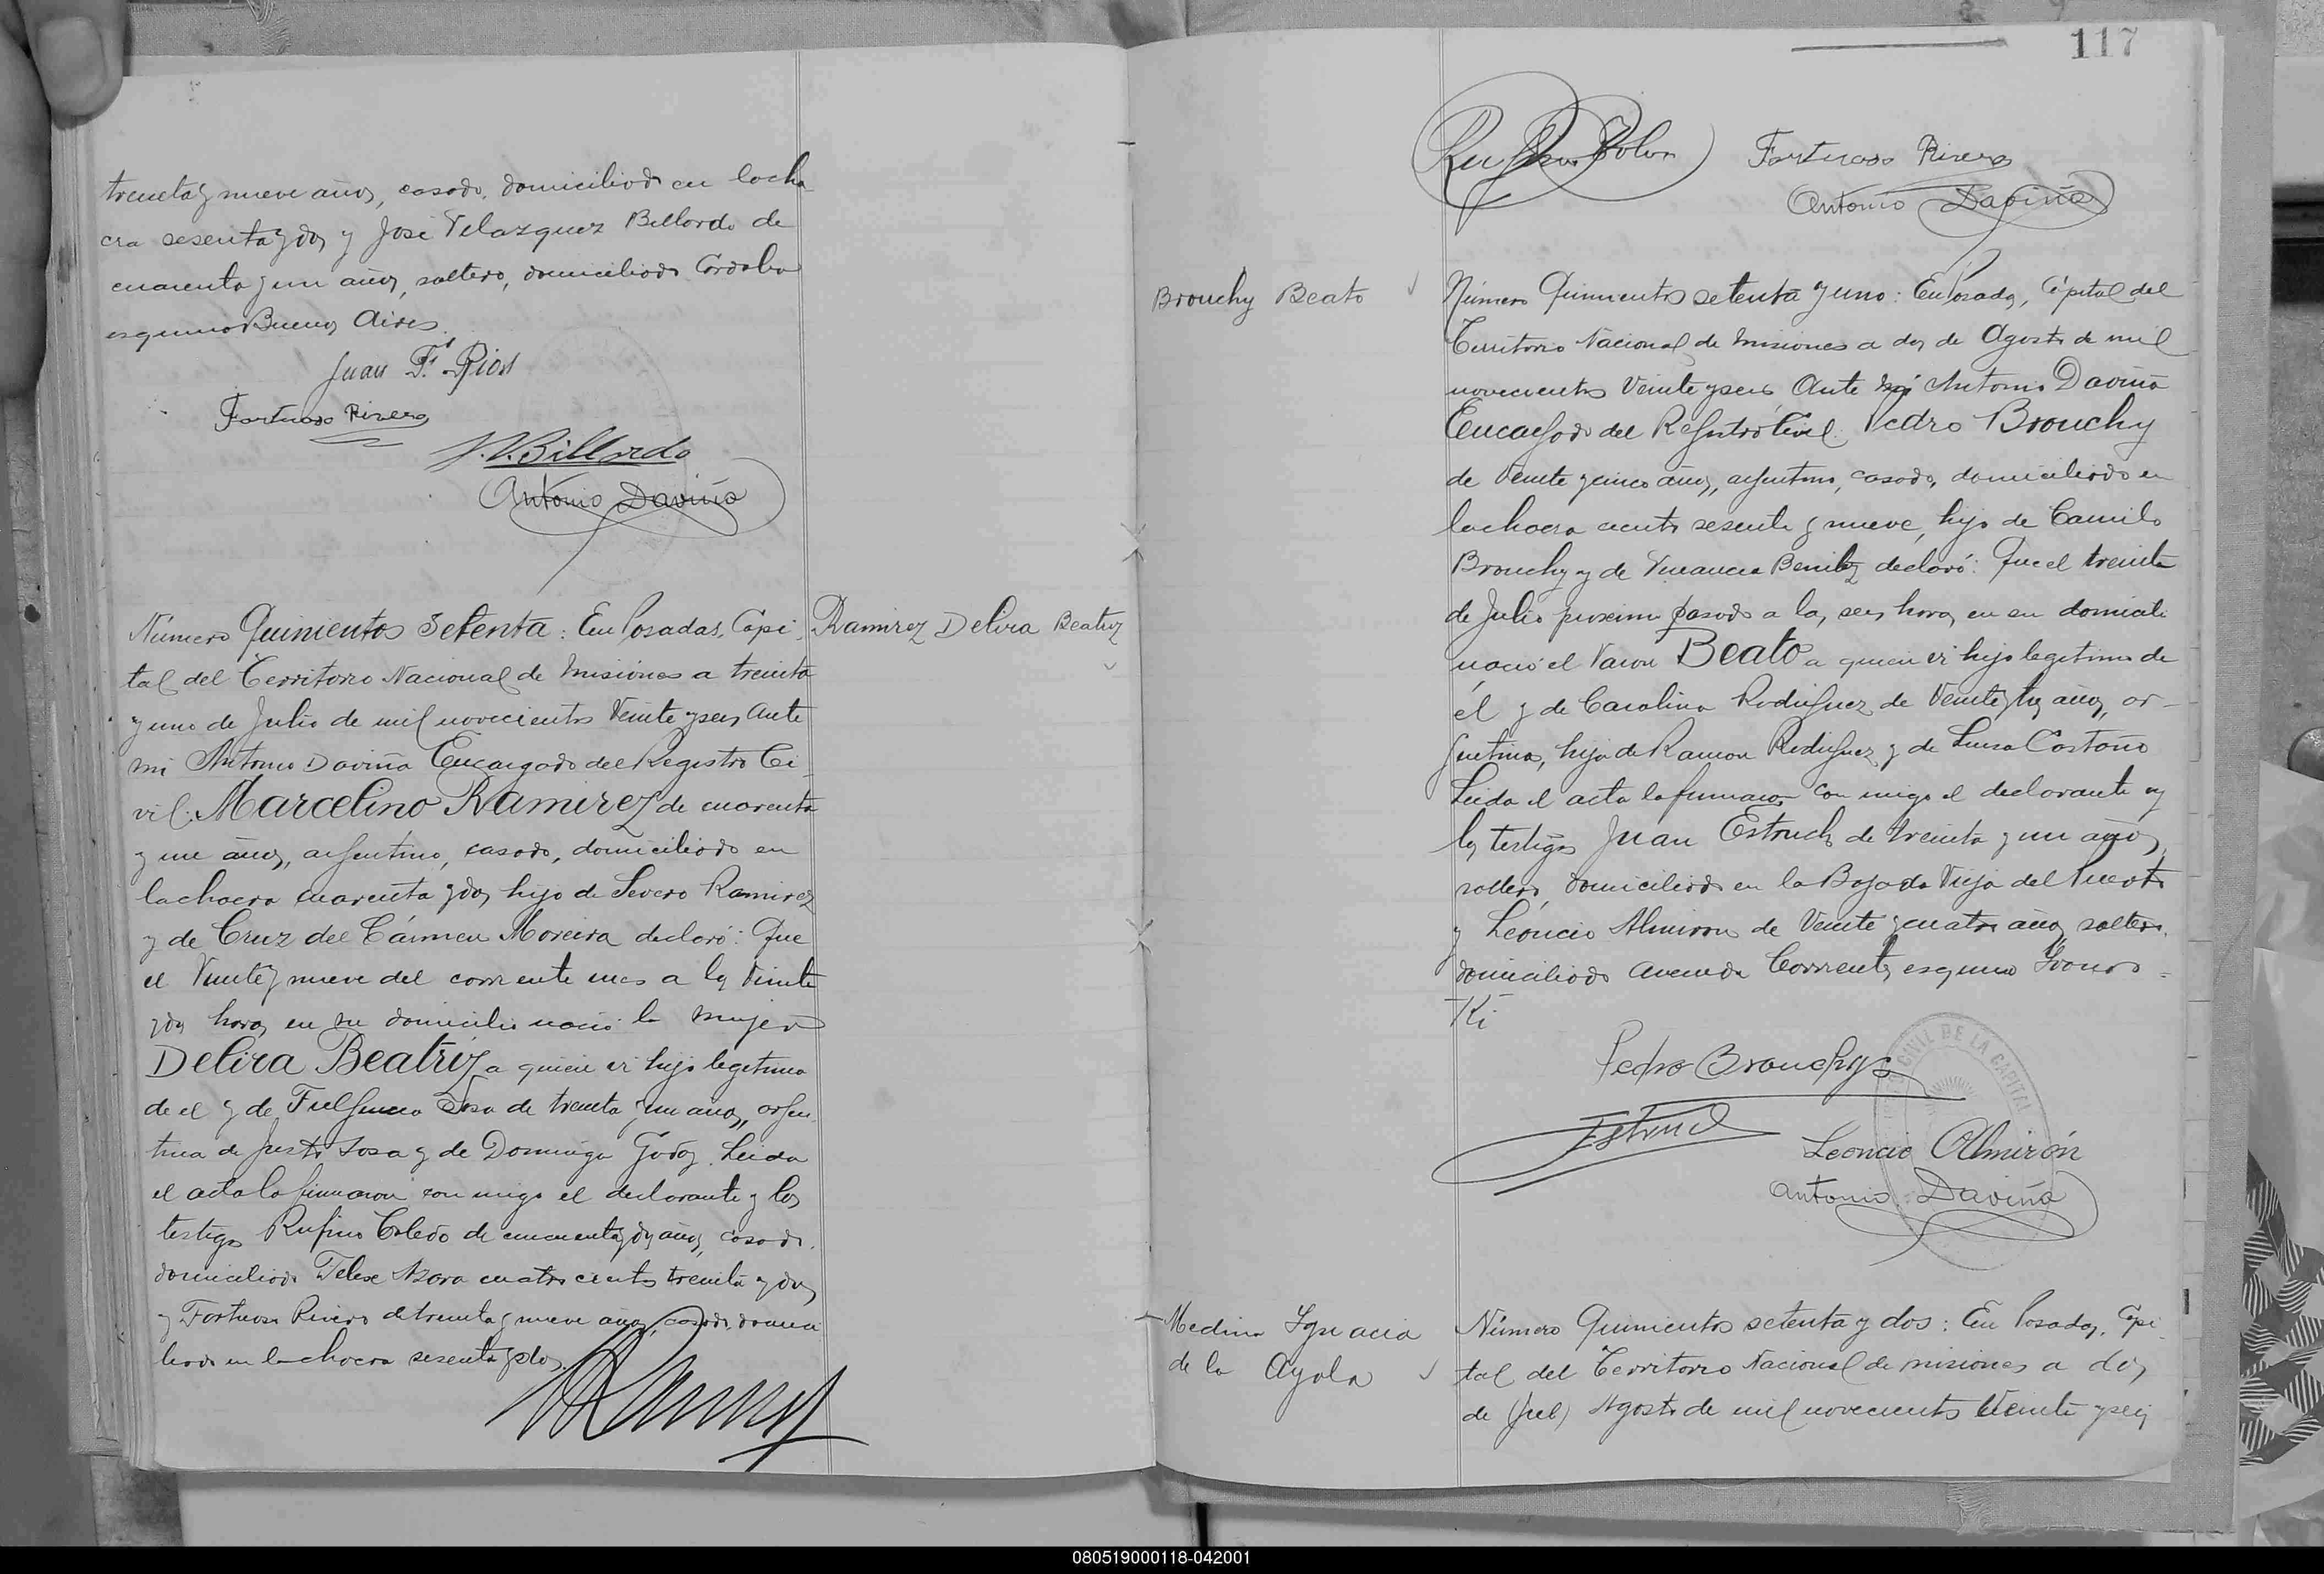 treinta y nueve años, casado, domiciliado en la cha-
cra sesenta y dos y José Velazquez Billordo de
cuarenta y un años, soltero, domiciliado Cordoba
esquina Buenos Aires.
Juan F. Rios
Fortunoso Rivero
J. V. Billordo
Antonio Daviña
Ramirez Delira Beatriz
Número Quinientos Setenta: En Posadas, Capi-
tal del Territorio Nacional de Misiones a treinta
y uno de Julio de mil novecientos Veinte y seis Ante
mi Antonio Daviña Encargado del Registro Ci-
vil: Marcelino Ramirez de cuarenta
y un años, argentino, casado, domiciliado en
la chacra cuarenta y dos, hijo de Severo Ramirez
y de Cruz del Cármen Moreira declaró: Que
el Veinte y nueve del corriente mes a las Veinte
y dos horas en su domicilio nació la mujer
Delira Beatriz a quien vi hija legitima
de el y de Fulgencia Sosa de treinta y un años, argen-
tina de Justo Sosa y de Dominga Godoy. Leida
el acta la firmaron con migo el declarante y los
testigos Rufino Toledo de cincuenta y dos años, casado.
domiciliado Felix Azara cuatro cientos treinta y dos
y Fortunoso Rivero de treinta y nueve años, casado, domici
liado en la chacra sesenta y dos.
MRamirez
117
Fortunoso Rivero
Antonio Daviña
Brouchy Beato
Número Quinientos setenta y uno: En Posadas, Cápital del
Territorio Nacional de Misiones a dos de Agosto de mil
novecientos Veinte y seis Ante mi Antonio Daviña
Encargado del Registro Civil: Pedro Brouchy
de Veinte y cinco años, argentino, casado, domiciliado en
la chacra ciento sesenta y nueve, hijo de Camilo
Brouchy y de Venancia Benitez declaró: Que el treinta
de Julio proximo pasado a las seis horas en su domicili
nació el Varon Beato a quien vi hijo legitimo de
él y de Carolina Rodriguez de Veinte y tres años, ar-
gentina, hija de Ramon Rodriguez y de Luisa Castaño
Leida el acta la firmaron con migo el declarante y
los testigos Juan Estruch de treinta y un años,
soltero, domiciliado en la Bajada Vieja del Puerto
y Léoncio Almiron de Veinte y cuatro años soltero.
domiciliado Avenida Corrientes esquina Ivanos-
Ki
Pedro Brouchy
Estruch
Leoncio Almirón
Antonio Daviña
CIVIL DE LA CAPITAL
Medina Ignacia
de la Ayala
Número Quinientos setenta y dos: En Posadas, Capi-
tal del Territorio Nacional de Misiones a dos
de (Jul) Agosto de mil novecientos Veinte y seis
080519000118-042001